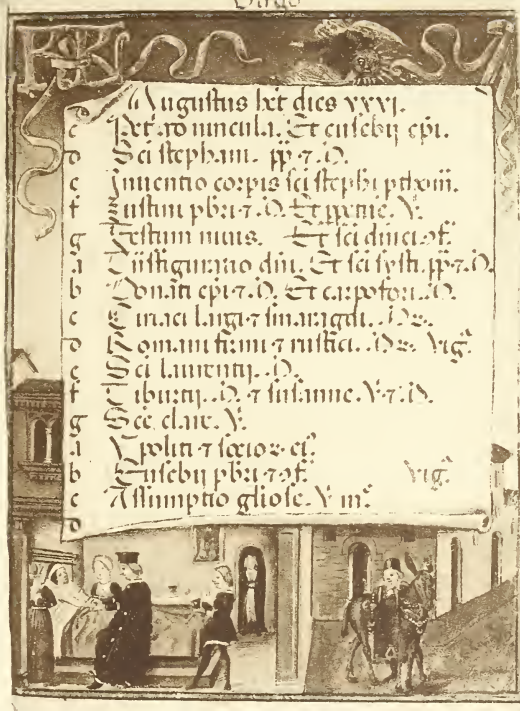 Virgo
KL
Augustus ht dies xxxi.
c Pet. ad uincula. Et eusebij epi.
d Sci stephani. pp ⁊ .M.
e Inuentio corpis sci stephi pthom.
f Iustini pbri ⁊ .M. Et V.
g Festum niuis. Et sci dinici ɔf.
a Tnsfiguratio dni. Et sci systi. pp ⁊ .M.
b Donati epi ⁊ .M. Et carpofori. .M.
c Ciriaci largi ⁊ smaragdi. .Mꝝ.
d Romani firmi ⁊ rustici. .Mꝝ. Vig.
e Sci laurentij. .M.
f Tiburtij. .M. ⁊ susanne. V. ⁊ .M.
g Sce clare. V.
a Ypoliti ⁊ socioꝝ ei.
b Eusebij pbri ⁊ ɔf. Vig.
c Assumptio gliose. V. m.
d